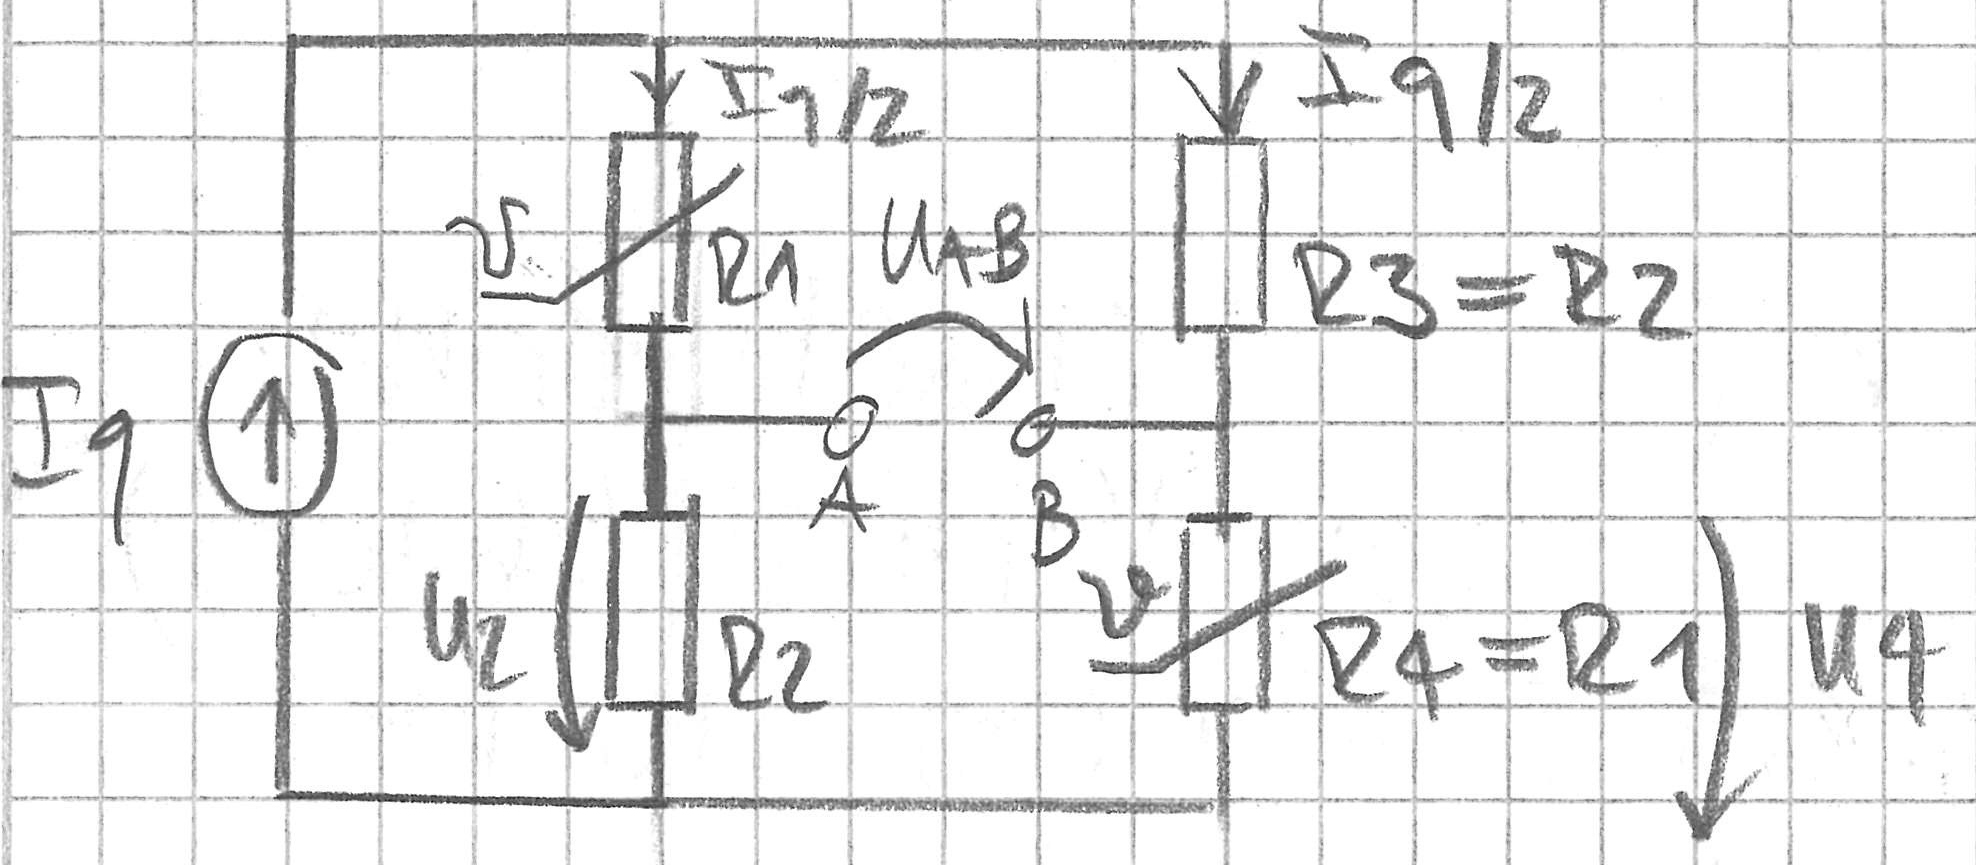 Iq/2
Iq/2
ϑ
R1
UAB
R3=R2
Iq
A
B
U2
R2
ϑ
R4=R1
U4